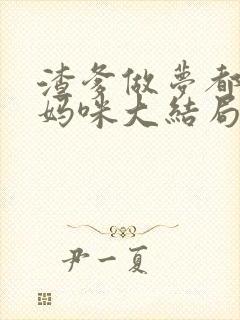 渣爹做夢都
媽咪大結局
尹一夏